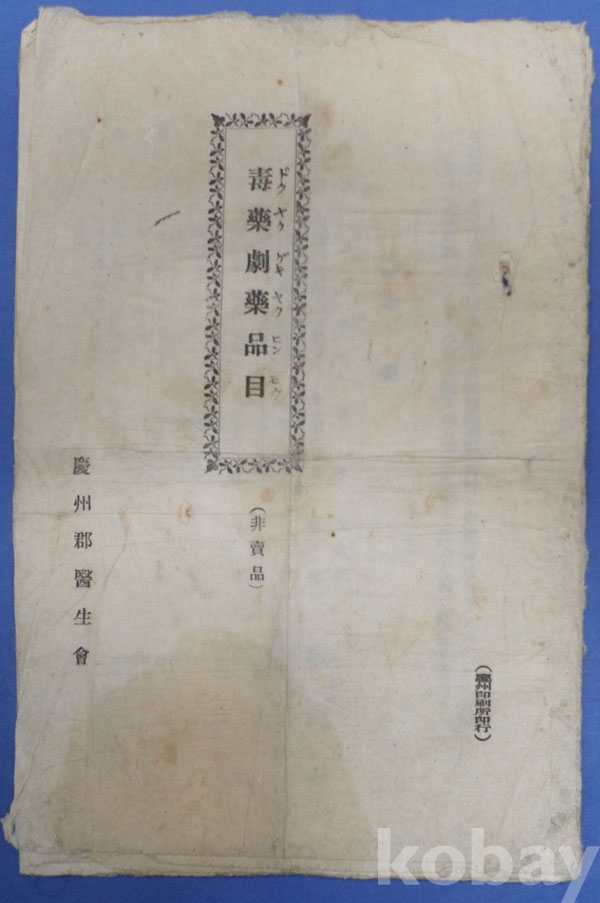 (慶州印刷所印行)
毒藥劇藥品目
ドクヤクゲキヤクヒンモク
(非賣品)
慶州郡醫生會
kobay